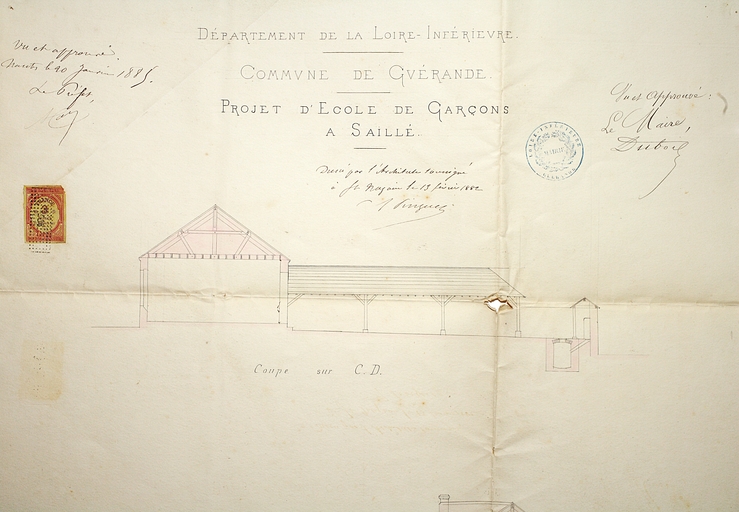 DÉPARTEMENT DE LA LOIRE-INFÉRIEVRE.
COMMVNE DE GVÉRANDE.
PROJET D'ECOLE DE GARÇONS
A SAILLÉ.
Vu et approuvé.
Nantes le 20 Janvier 1885.
Le Préfet,
Vu et Approuvé:
Le Maire,
Dressé par l'Architecte soussigné
à St Nazaire le 13 février 1882
LOIRE-INFÉRIEURE
MAIRIE
GUÉRANDE
Coupe sur C.D.